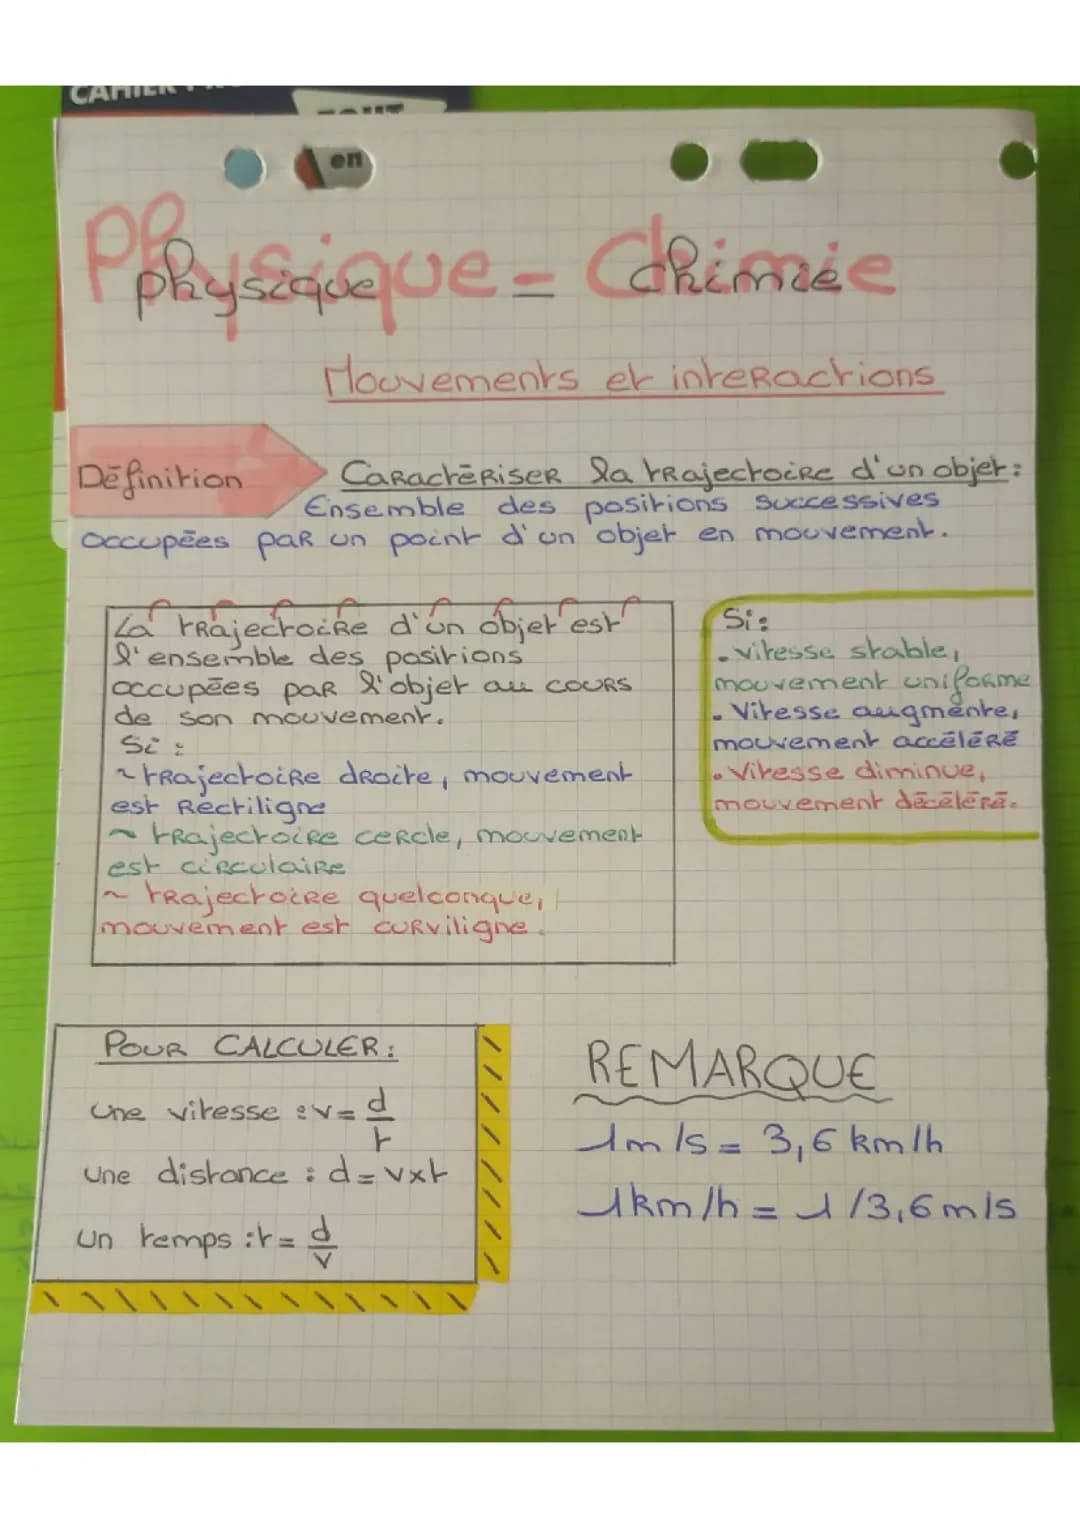 CAHIER
en
Physique - Chimie
physique chimie
Mouvements et interactions
Définition
Caractériser la trajectoire d'un objet :
Ensemble des positions successives
occupées par un point d'un objet en mouvement.
La trajectoire d'un objet est
l'ensemble des positions
occupées par l'objet au cours
de son mouvement.
Si :
~ trajectoire droite, mouvement
est Rectiligne
~ trajectoire cercle, mouvement
est circulaire
~ trajectoire quelconque,
mouvement est curviligne.
Si :
• vitesse stable,
mouvement uniforme
• Vitesse augmente,
mouvement accéléré
• Vitesse diminue,
mouvement décéléré.
POUR CALCULER :
une vitesse : v = d/t
une distance : d = v x t
un temps : t = d/v
REMARQUE
1m/s = 3,6 km/h
1km/h = 1/3,6 m/s